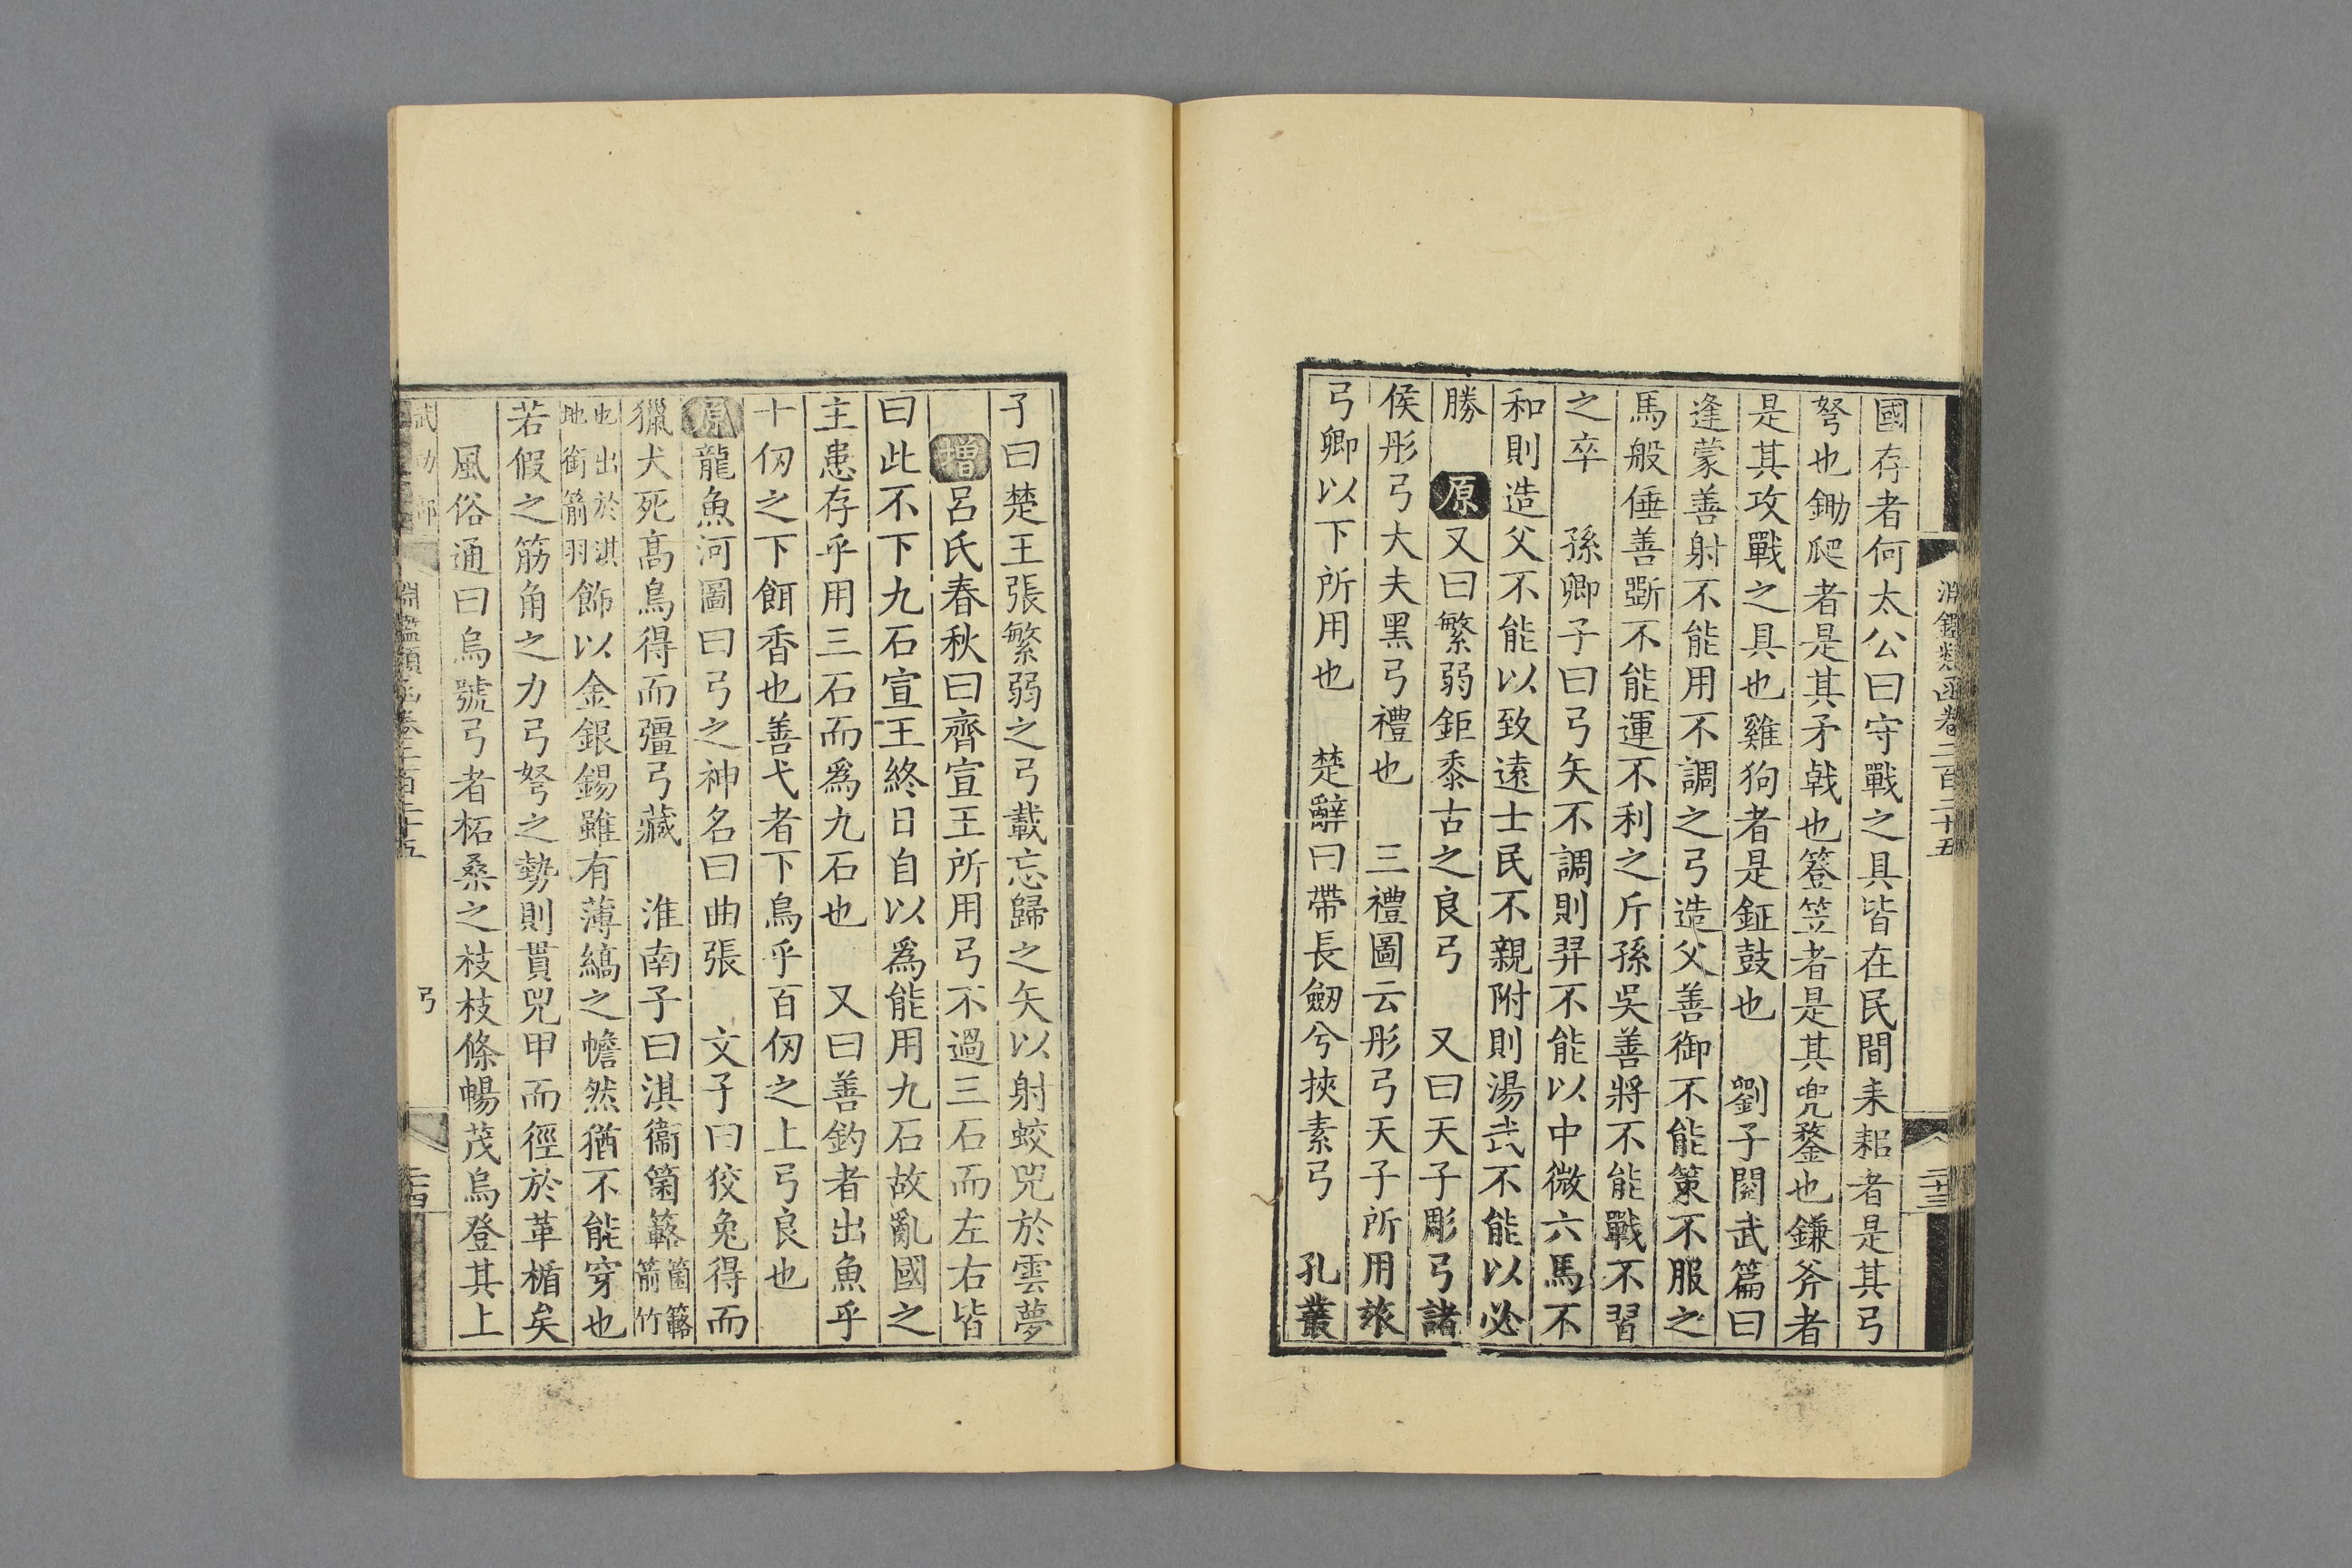 淵鑑類函卷二百二十五
二十三
國存者何太公曰守戰之具皆在民間耒耜者是其弓
弩也鋤爬者是其矛戟也簦笠者是其兜鍪也鎌斧者
是其攻戰之具也雞狗者是鉦鼓也　劉子閱武篇曰
逢蒙善射不能用不調之弓造父善御不能策不服之
馬般倕善斲不能運不利之斤孫吳善將不能戰不習
之卒　孫卿子曰弓矢不調則羿不能以中微六馬不
和則造父不能以致遠士民不親附則湯武不能以必
勝　原又曰繁弱鉅黍古之良弓　又曰天子彫弓諸
侯彤弓大夫黑弓禮也　三禮圖云彤弓天子所用玈
弓卿以下所用也　楚辭曰帶長劒兮挾素弓　孔叢
子曰楚王張繁弱之弓載忘歸之矢以射蛟兕於雲夢
增呂氏春秋曰齊宣王所用弓不過三石而左右皆
曰此不下九石宣王終日自以爲能用九石故亂國之
主患存乎用三石而爲九石也　又曰善釣者出魚乎
十仞之下餌香也善弋者下鳥乎百仞之上弓良也
原龍魚河圖曰弓之神名曰曲張　文子曰狡兔得而
獵犬死高鳥得而彊弓藏　淮南子曰淇衞箘簵箘簵箭竹
也出於淇地衞箭羽飾以金銀錫雖有薄縞之幨然猶不能穿也
若假之筋角之力弓弩之勢則貫兕甲而徑於革楯矣
風俗通曰烏號弓者柘桑之枝枝條暢茂烏登其上
武功部
淵鑑類函卷二百二十五
弓
二十四